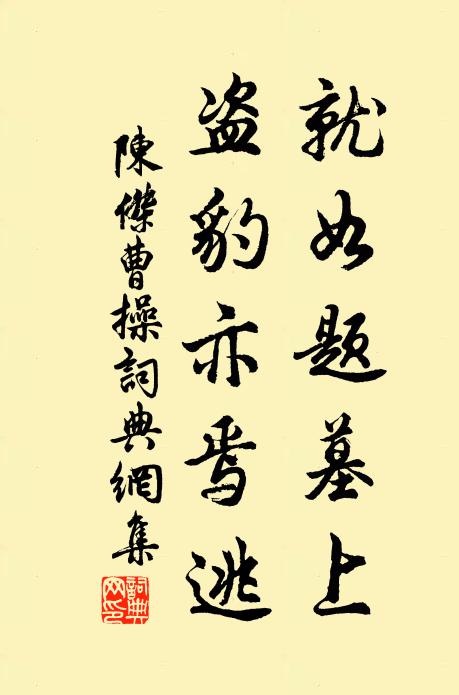 就如題墓上
盗豹亦焉逃
陳傑曹操詞典網集
詞典網印